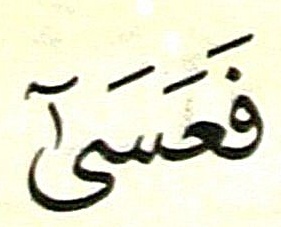 فَعَسَىٰٓ